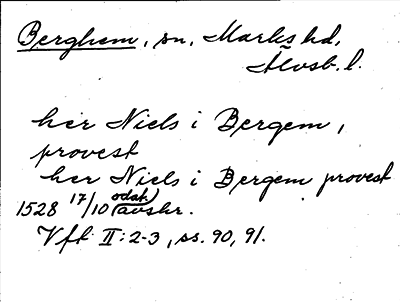 Berghem, sn, Marks hd,
Älvsb. l.
her Niels i Bergem,
provest
her Niels i Bergem provest
1528 17/10 (odat) avskr.
Vft II:2-3, ss. 90, 91.